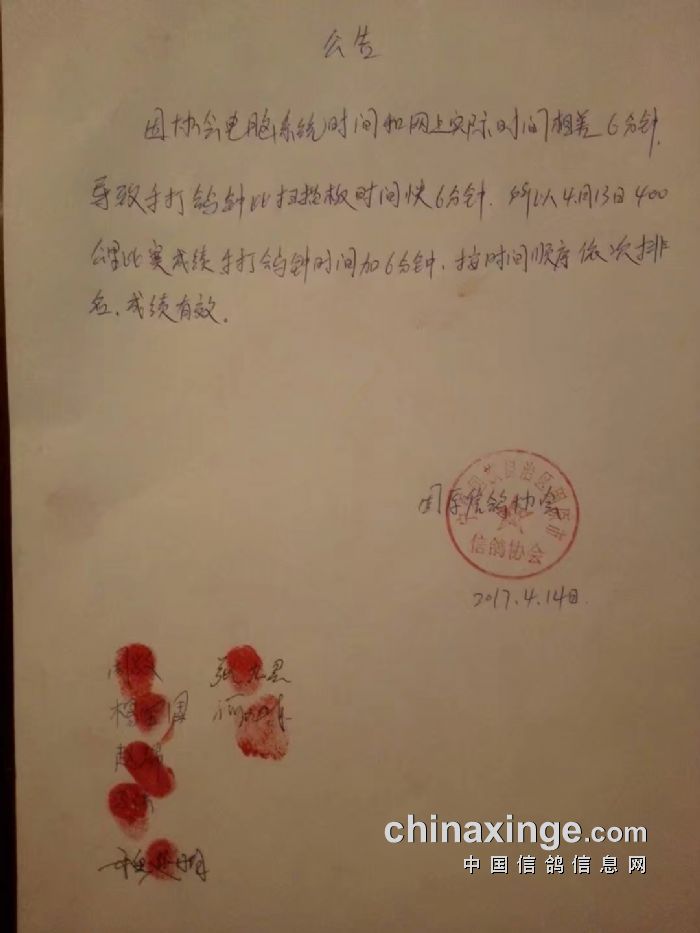 公告
因协会电脑系统时间和网上实际时间相差6分钟,
导致手打鸽钟比扫描板时间快6分钟. 所以4月13日400
公里比赛成绩手打鸽钟时间加6分钟. 按时间顺序依次排
名. 成绩有效.
固原信鸽协会
信鸽协会
2017.4.14日.
chinaxinge.com
中国信鸽信息网